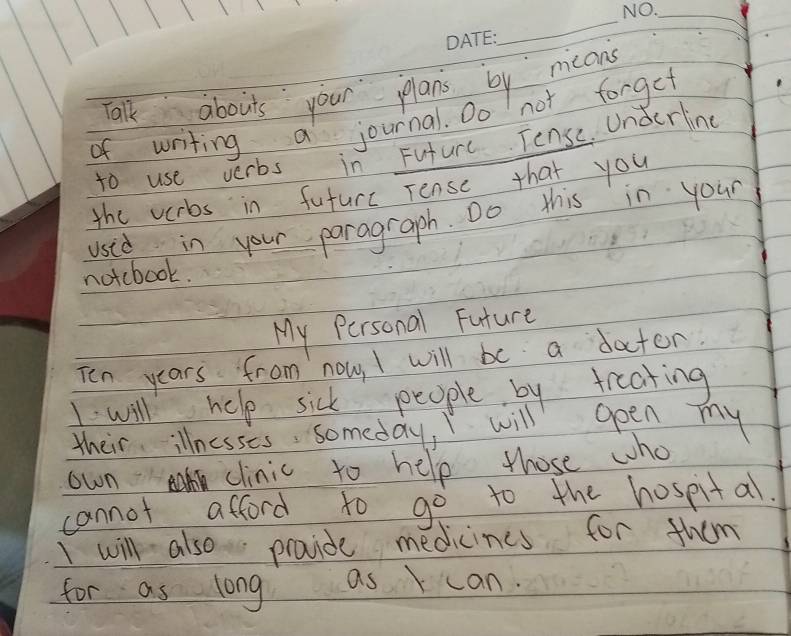 NO.
DATE:
Talk abouts your plans by means
of writing a journal. Do not forget
to use verbs in Future Tense. Underline
the verbs in future Tense that you
used in your paragraph. Do this in your
notebook.
My Personal Future
Ten years from now, I will be a doctor.
I will help sick people by treating
their illnesses. someday, I will open my
own clinic to help those who
cannot afford to go to the hospital.
I will also provide medicines for them
for as long as I can.